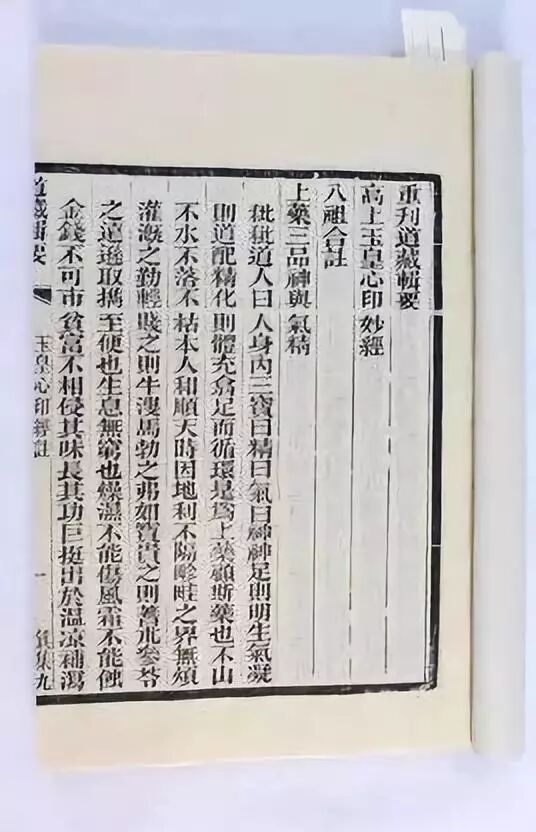 重刊道藏輯要
高上玉皇心印妙經
八祖合註
上藥三品神與氣精
秕秕道人曰人身內三寶曰精曰氣曰神神足則明生氣凝
則道配精化則體充翕足而循環是為上藥顧斯藥也不山
不水不落不枯本人和順天時因地利不陽畛畦之界無煩
灌溉之勤輕賤之則牛溲馬勃之弗如寶貴之則蓍朮參苓
之遠遜取攜至便也生息無窮也燥濕不能傷風霜不能蝕
金錢不可市貧富不相侵其味長其功巨挺出於溫凉補瀉
道藏輯要 玉皇心印經註 一 箕集九